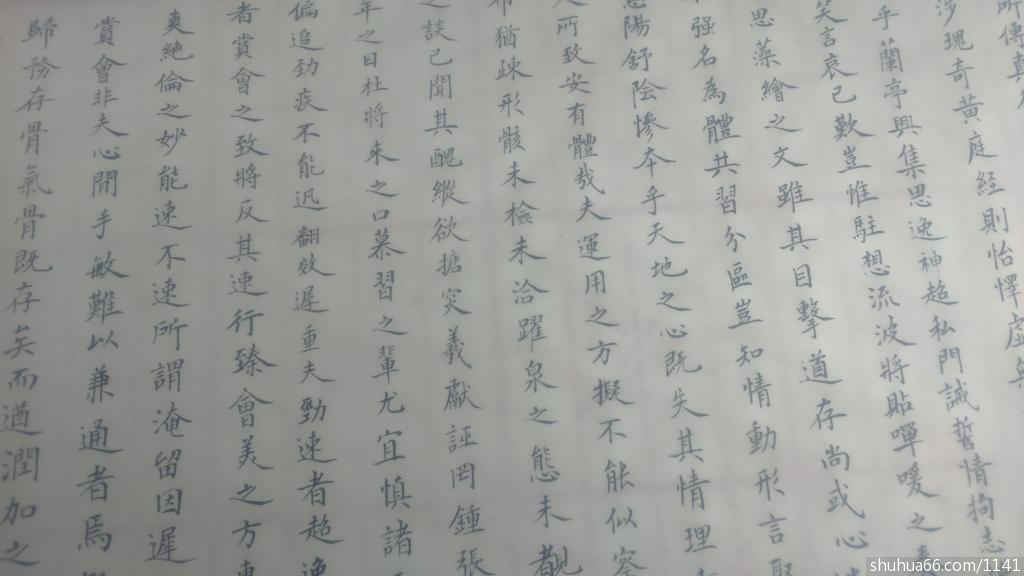 所傳
涉瑰奇黃庭經則怡懌虛
乎蘭亭興集思逸神超私門誡誓情拘志
笑言哀已歎豈惟駐想流波將貽嘽喭之
思藻繪之文雖其目擊道存尚或心
强名為體共習分區豈知情動形言取
陽舒陰慘本乎天地之心既失其情理
所致安有體哉夫運用之方擬不能似察
猶疎形骸未檢未洽躍泉之態未覩
之談已聞其醜縱欲搪突羲獻誣罔鍾張
年之目杜將來之口慕習之輩尤宜慎諸
偏追勁疾不能迅翻效遲重夫勁速者超逸
者賞會之致將反其速行臻會美之方專
爽絕倫之妙能速不速所謂淹留因遲
賞會非夫心閒手敏難以兼通者焉
歸務存骨氣骨既存矣而遒潤加之
shuhua66.com/1141